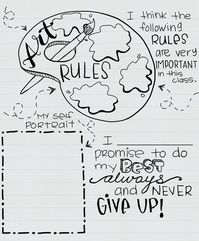 Art
RULES
I think the
following
RULES
are very
IMPORTANT
in this
class.
MY SELF
PORTRAIT
I
promise to do
my BEST
always
and NEVER
GIVE UP!